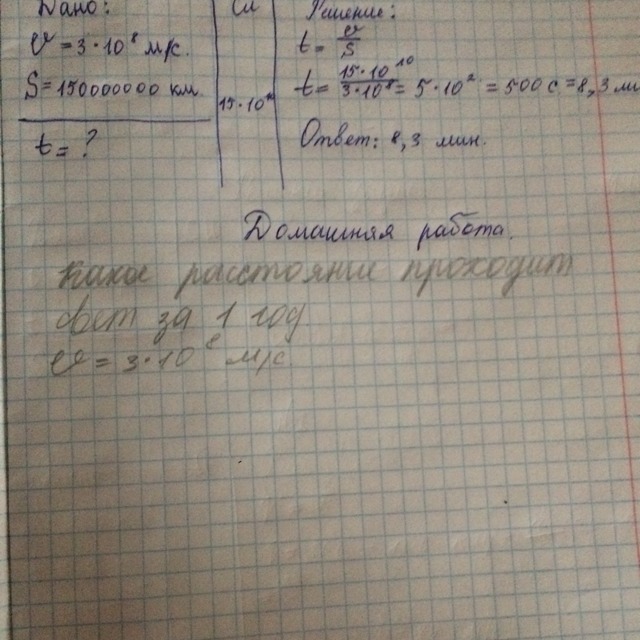 Дано:
υ = 3·10⁸ м/с.
S = 150000000 км.
t = ?
Си
15·10
Решение:
t = υ/S
t = 15·10¹⁰/3·10⁸ = 5·10² = 500 с = 8,3 ми
Ответ: 8,3 мин.
Домашняя работа.
Какое расстояние проходит
свет за 1 год
υ = 3·10⁸ м/с